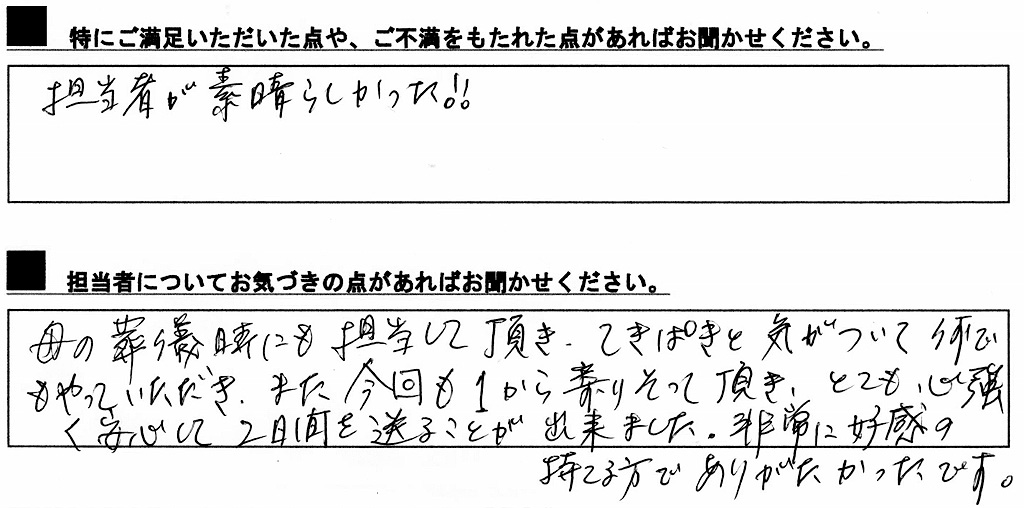 ■ 特にご満足いただいた点や、ご不満をもたれた点があればお聞かせください。
担当者が素晴らしかった!!
■ 担当者についてお気づきの点があればお聞かせください。
母の葬儀時にも担当して頂き、てきぱきと気がついて何で
もやっていただき、また今回も1から寄りそって頂き、とても心強
く安心して2日間を送ることが出来ました。非常に好感の
持てる方でありがたかったです。